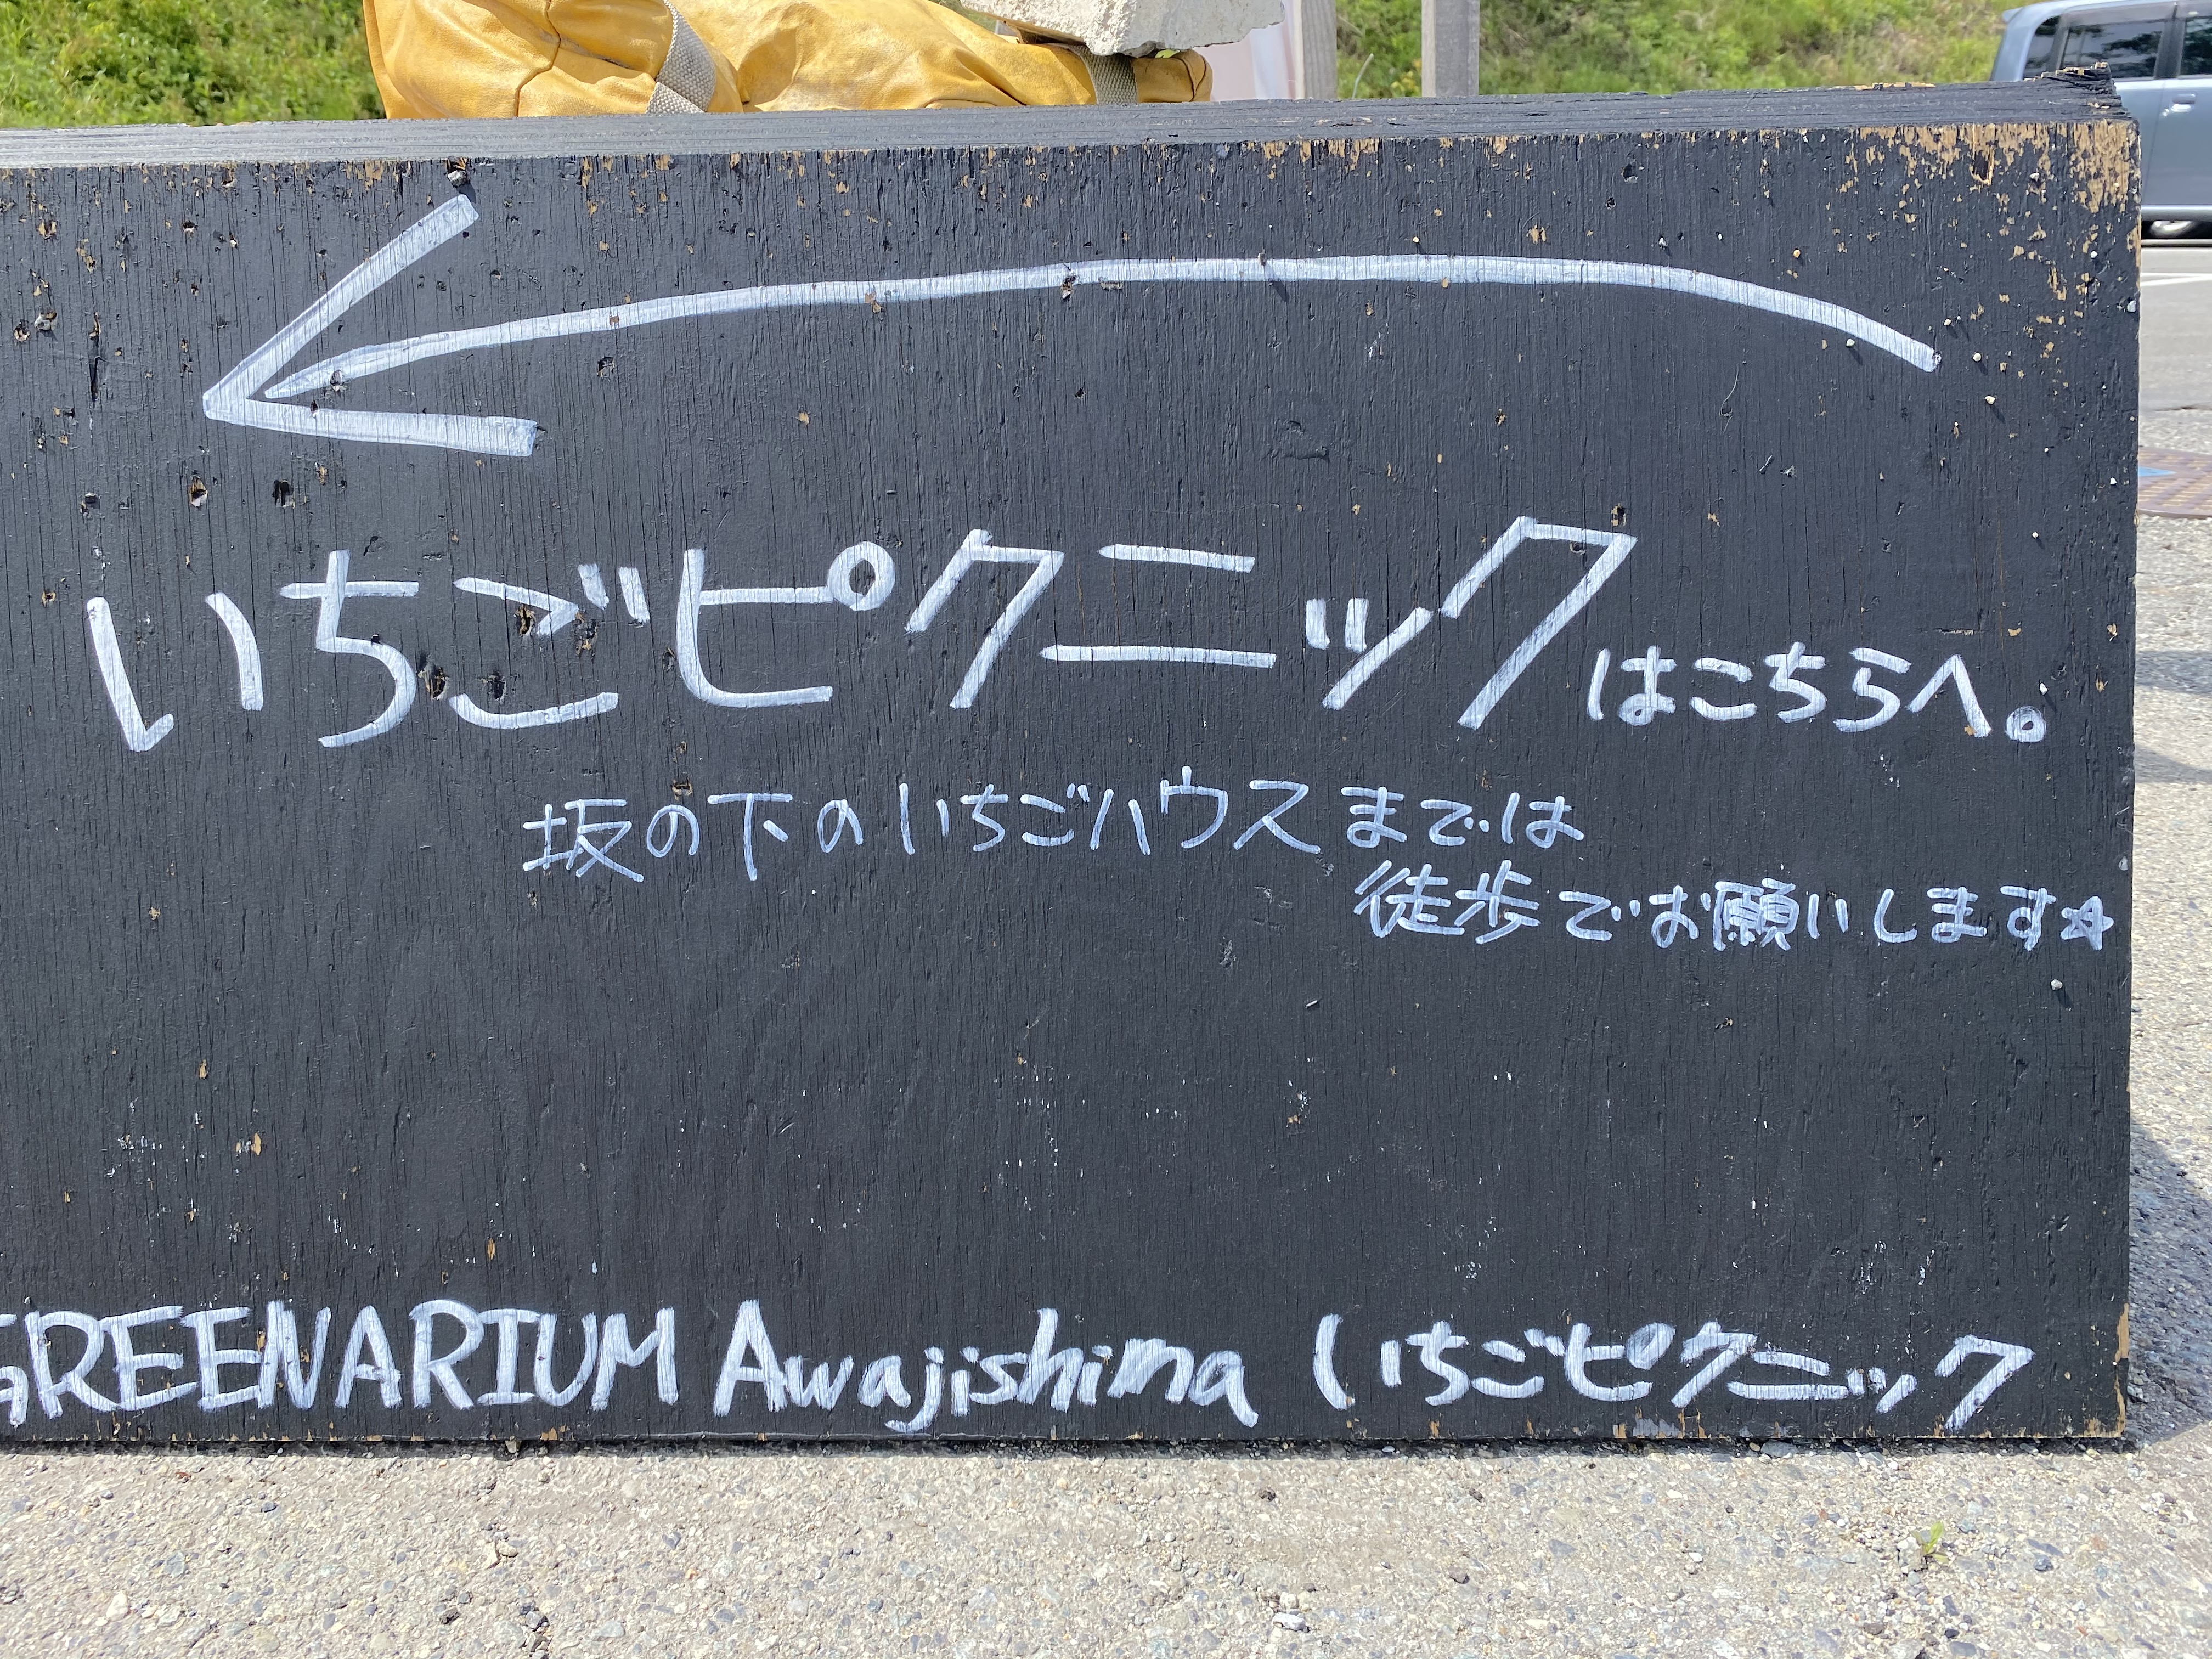 いちごピクニックはこちらへ。
坂の下のいちごハウスまでは
徒歩でお願いします☆
GREENARIUM Awajishima (いちごピクニック